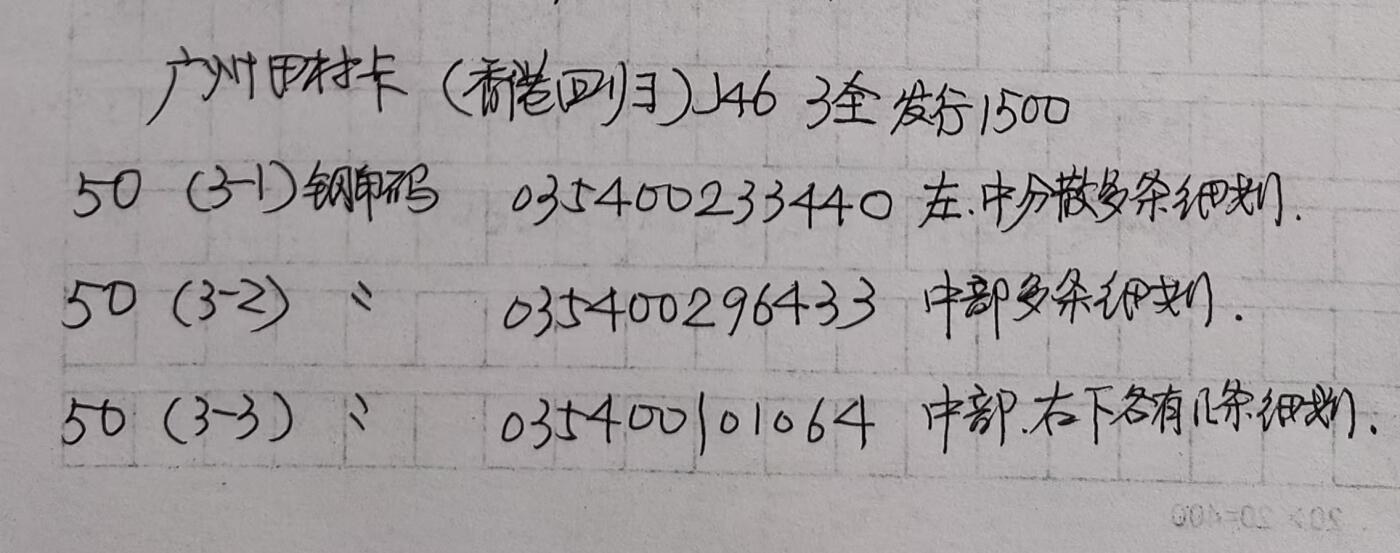 广州田村卡（香港回归）J46 3全 发行1500
50 (3-1) 钢印码 035400233440 左.中分散多条细划.
50 (3-2) 〃 035400296433 中部多条细划.
50 (3-3) 〃 035400101064 中部.右下各有几条细划.
20×20=400